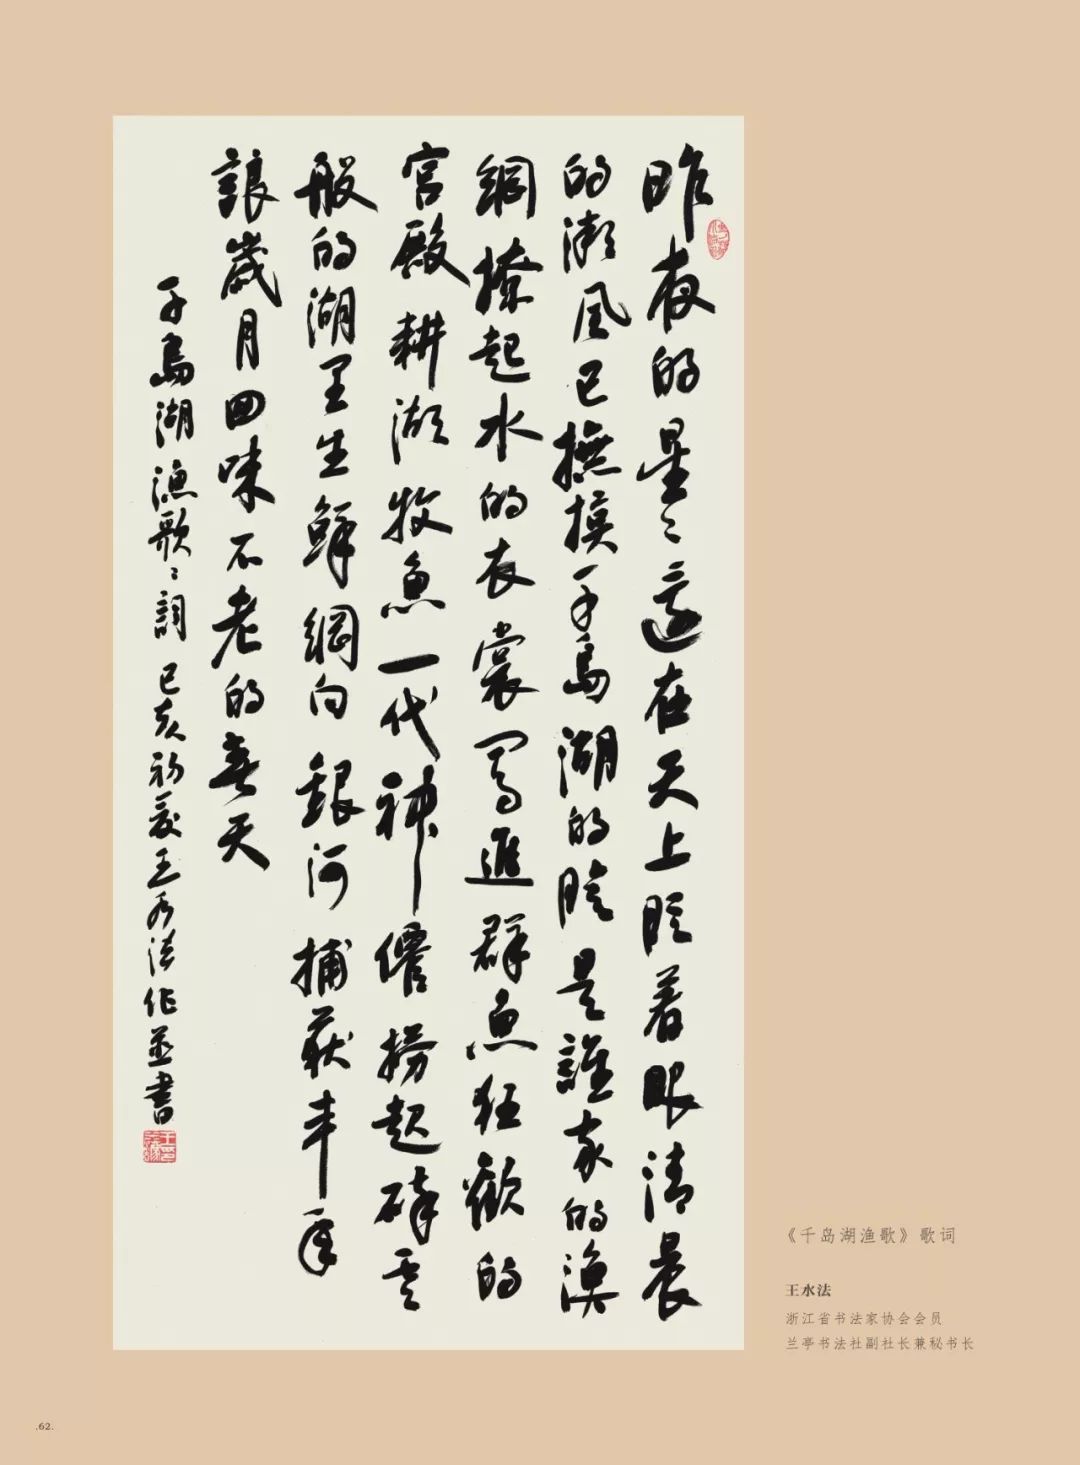 昨夜的星〻還在天上眨着眼清晨
的湖风已撫摸千島湖的臉是誰家的漁
網撩起水的衣裳闖進群魚狂歡的
宫殿耕湖牧魚一代神僊捞起碎雲
般的湖里生鮮網向銀河捕获丰年
讓歲月回味不老的春天
千島湖漁歌〻詞 己亥初夏王水法作並書
《千岛湖渔歌》歌词
王水法
浙江省书法家协会会员
兰亭书法社副社长兼秘书长
.62.